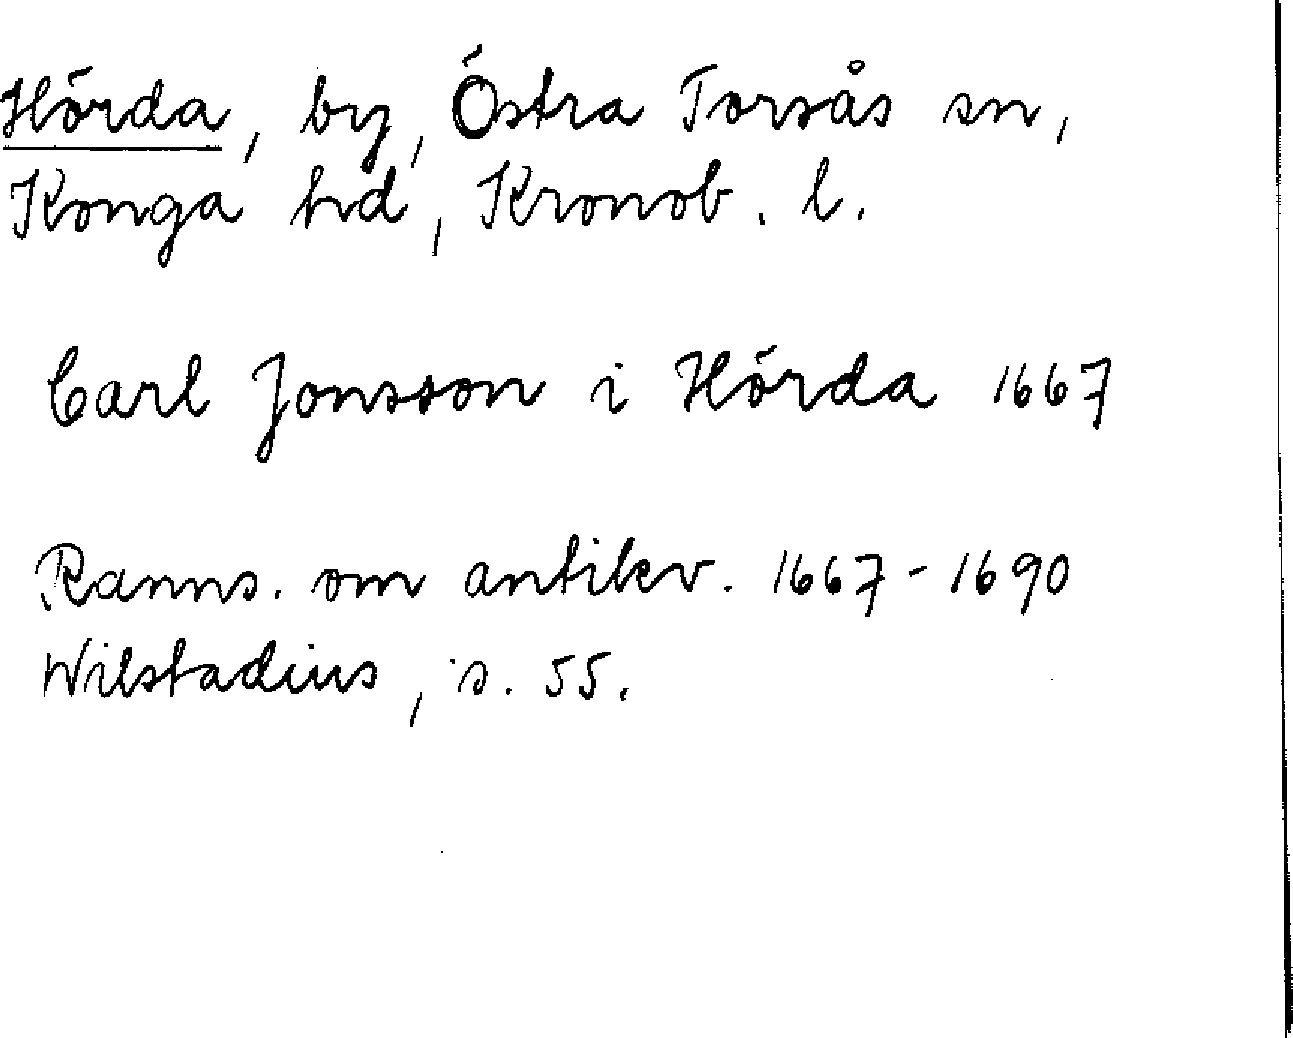 Hörda, by, Östra Torsås sn,
Konga hd, Kronob. l.
Carl Jonsson i Hörda 1667
Ranns. om antikv. 1667-1690
Wilstadius, s. 55.